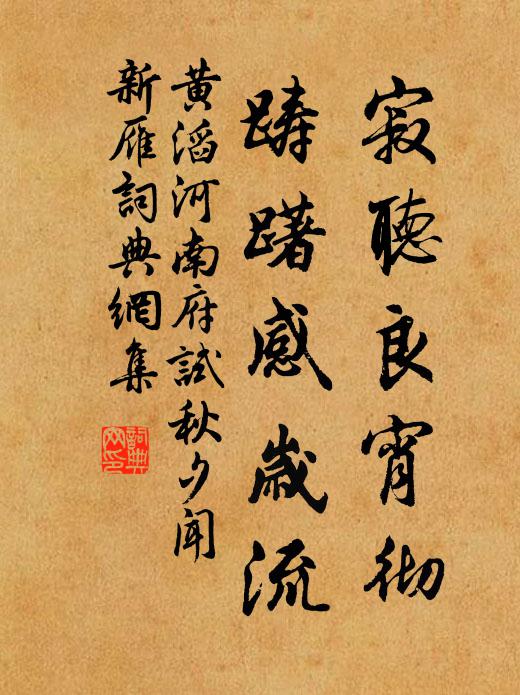 寂聽良宵彻
躊躇感歲流
黃滔河南府試秋夕聞
新雁詞典網集
詞典
网印